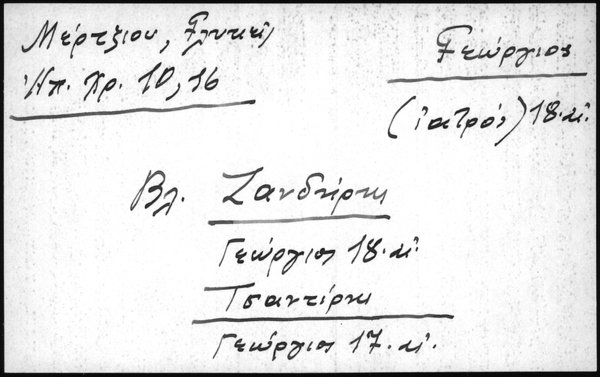 Μέρτζιου, Γλυκεῖς
Ἠπ. Χρ. 10, 16
Γεώργιος
(ἰατρός) 18. αἰ.
Βλ. Ζανδήρης
Γεώργιος 18. αἰ.
Τσαντίρης
Γεώργιος 17. αἰ.